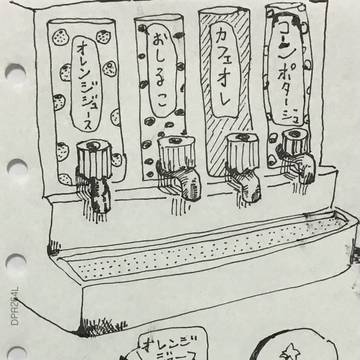 オレンジジュース
おしるこ
カフェオレ
コーンポタージュ
オレンジ
ジュース
DPR264L